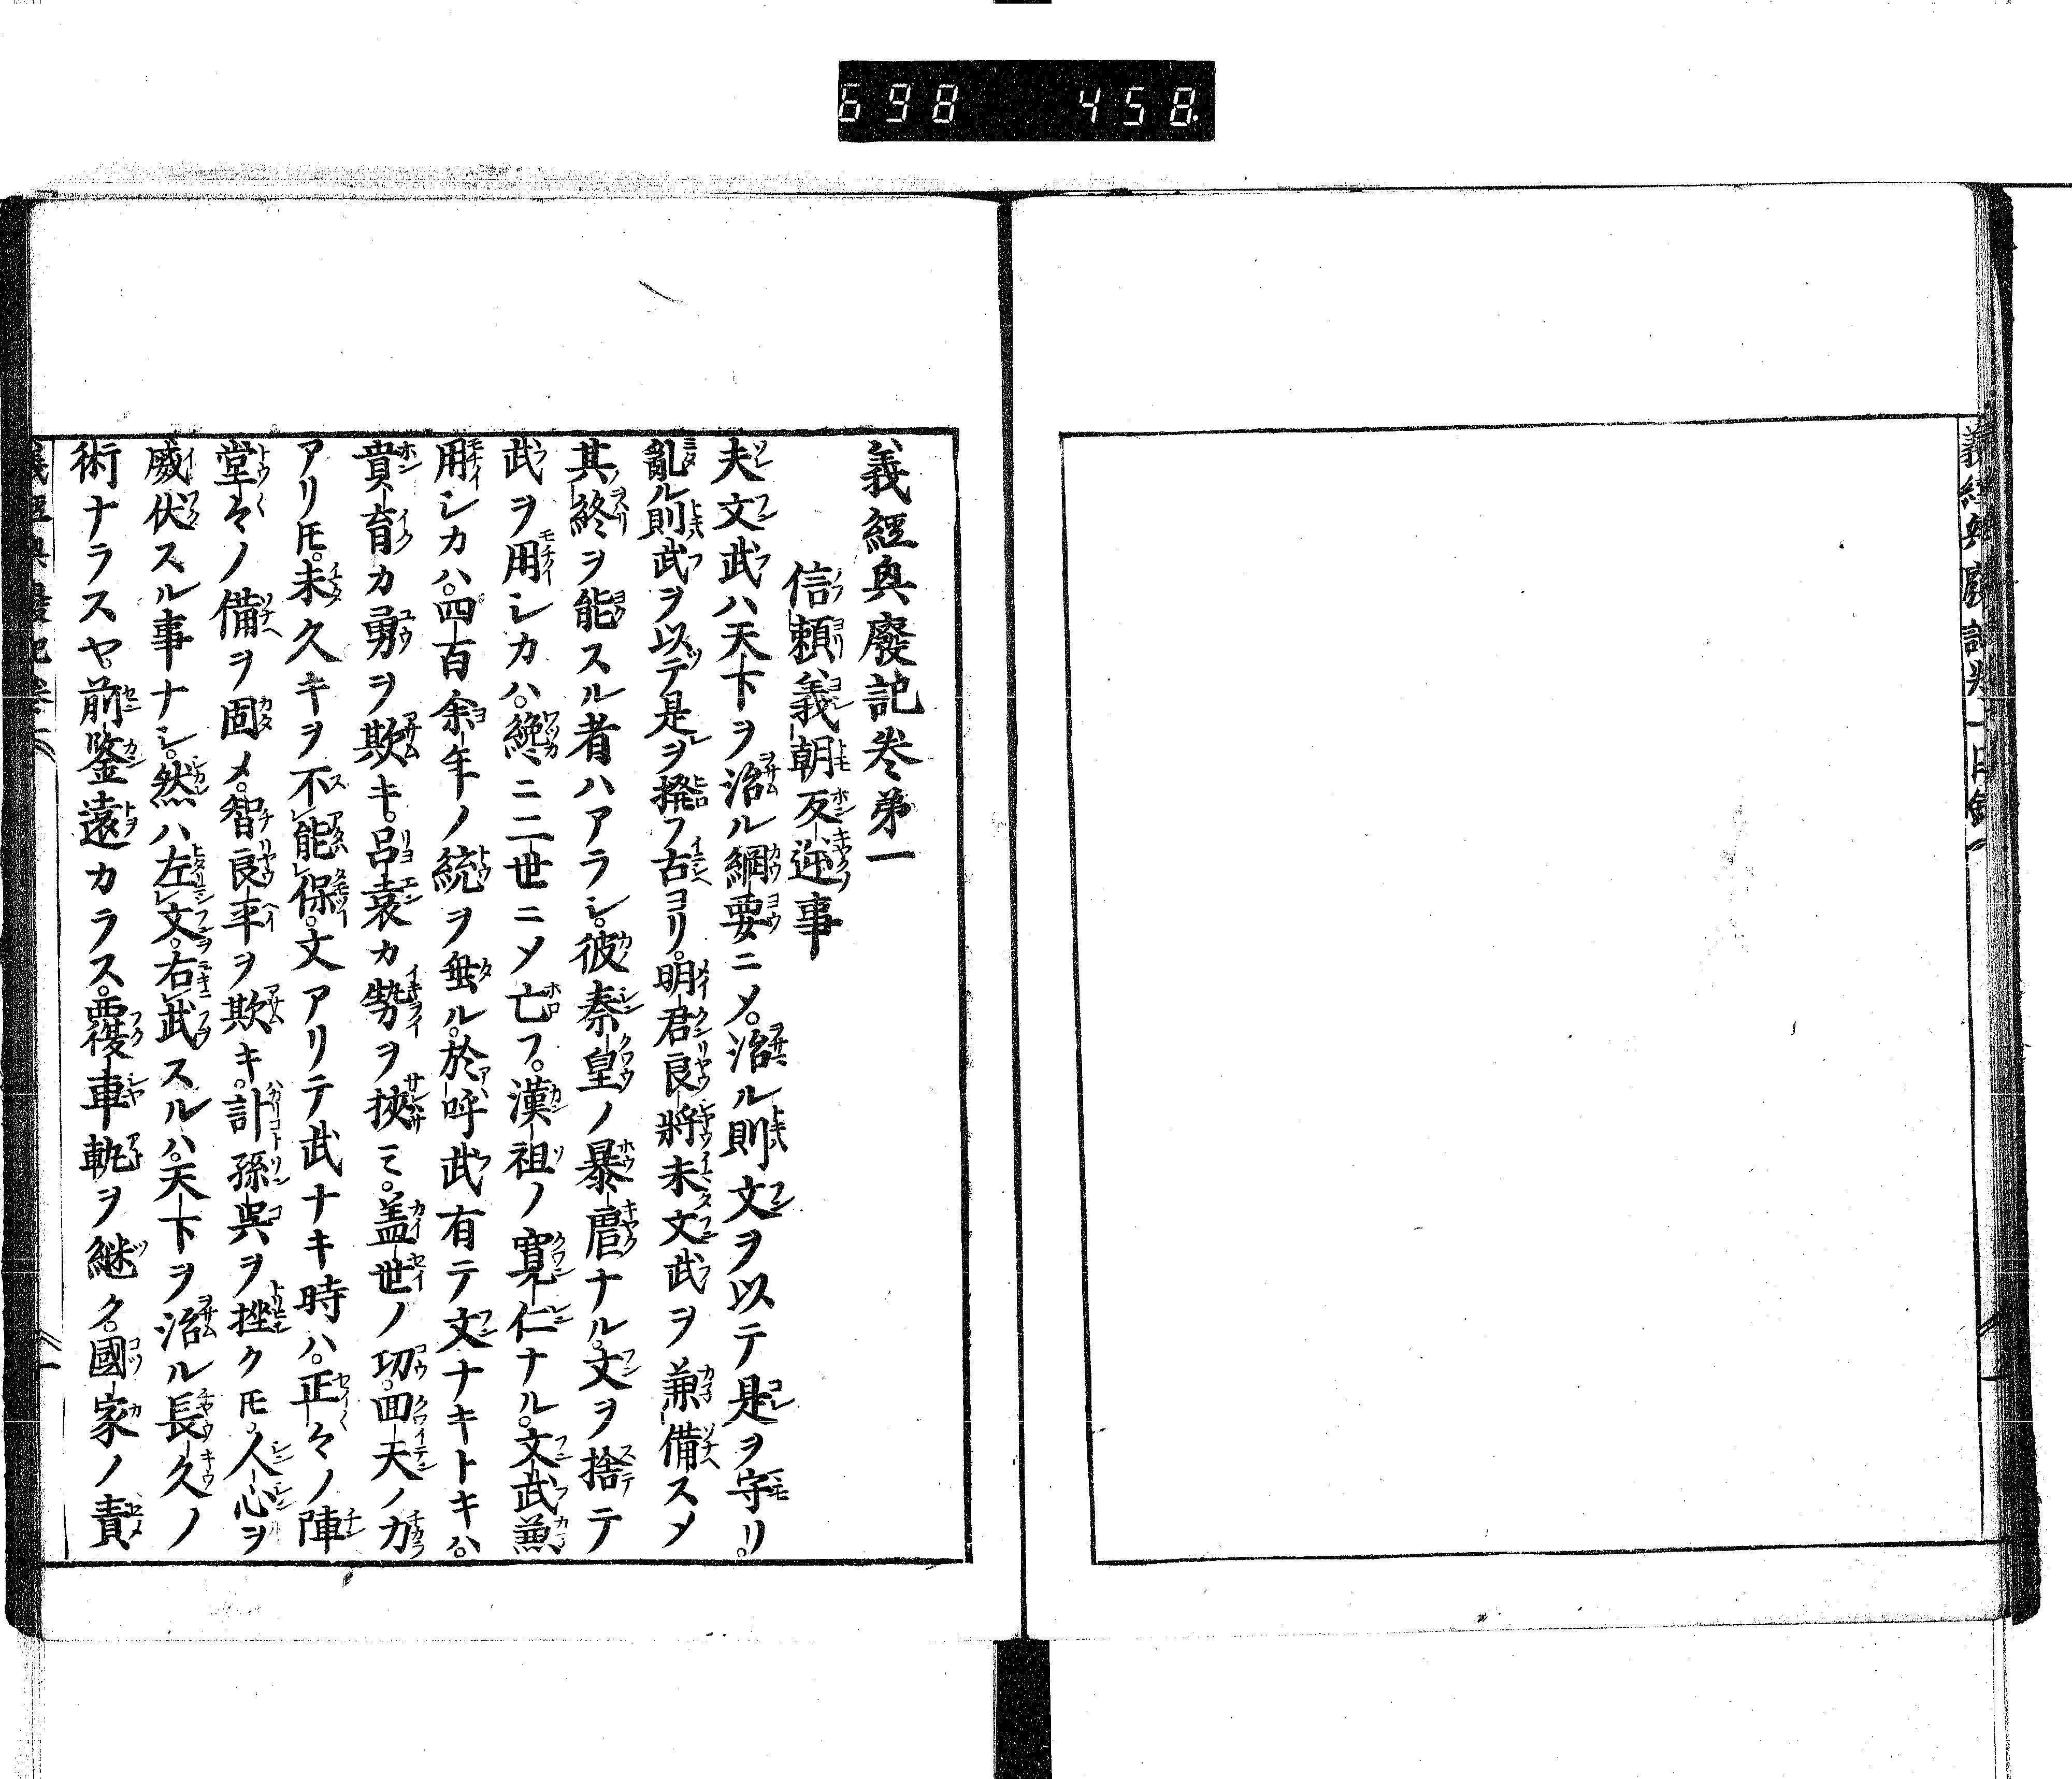 698 458.
義經興廢記卷一目錄 一
義經興廢記卷第一
信頼義朝反逆事
夫文武ハ天下ヲ治ル綱要ニメ。治ル則文ヲ以テ是ヲ守リ。
亂ル則武ヲ以テ是ヲ撥フ古ヨリ。明君良將未文武ヲ兼備スメ
其終ヲ能スル者ハアラシ。彼秦皇ノ暴虐ナル。文ヲ捨テ
武ヲ用シカハ。纔ニ二世ニメ亡フ。漢祖ノ寛仁ナル。文武兼
用シカハ。四百余年ノ統ヲ垂ル。於呼武有テ文ナキトキハ。
賁育カ勇ヲ欺キ。呂袁カ勢ヲ挾ミ。盖世ノ功。回天ノ力
アリ𪜈。未久キヲ不能保。文アリテ武ナキ時ハ。正々ノ陣
堂々ノ備ヲ固メ。智良平ヲ欺キ。計孫呉ヲ挫ク𪜈。人心ヲ
威伏スル事ナシ。然ハ左文。右武スルハ。天下ヲ治ル長久ノ
術ナラスヤ。前鍳遠カラス。覆車軌ヲ継ク。國家ノ責
義經興廢記卷一 一